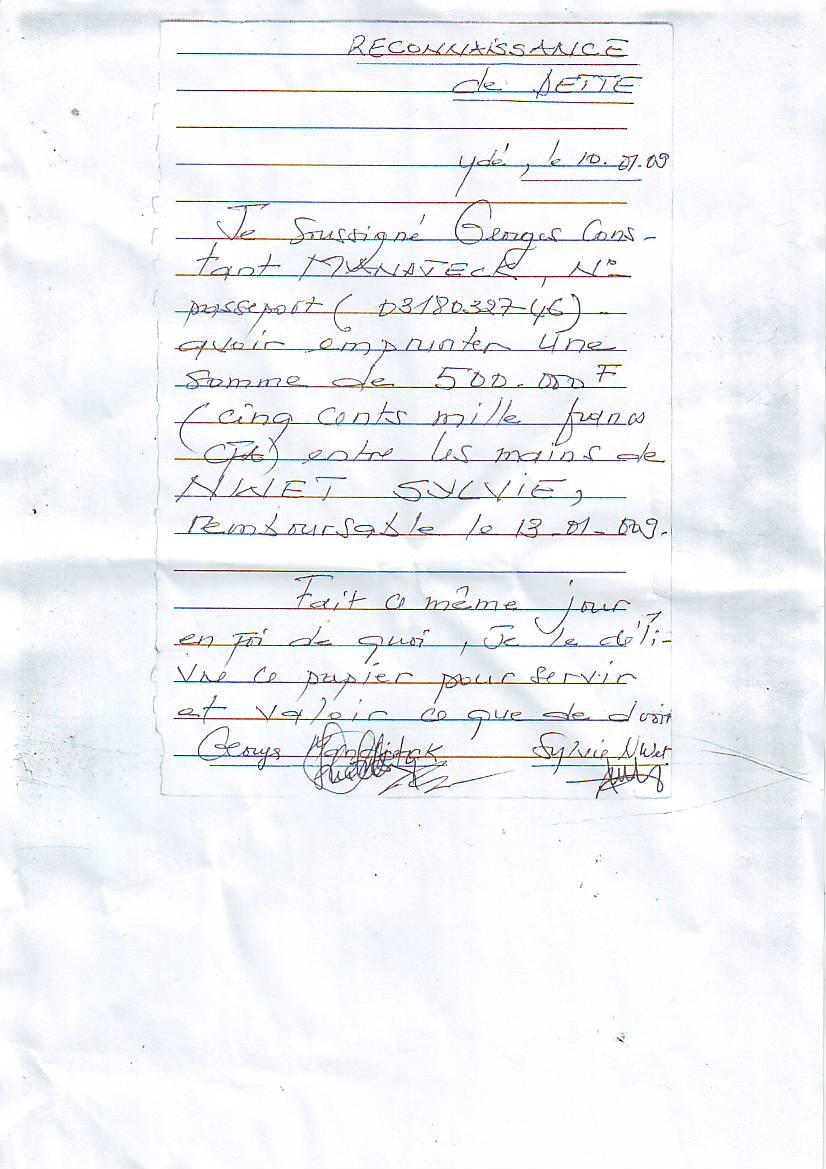 RECONNAISSANCE
de DETTE
Ydé, le 10.01.09
Je Soussigné Georges Cons-
tant MANATECK, No
passeport ( 03180327-46)
avoir emprunter Une
Somme de 500.000 F
(cinq cents mille francs
CFA) entre les mains de
NWET SYLVIE,
remboursable le 13-01-009.
Fait ce même jour
en foi de quoi, Je le déli-
vre ce papier pour servir
et valoir ce que de droit
Georges
Sylvie Nwet